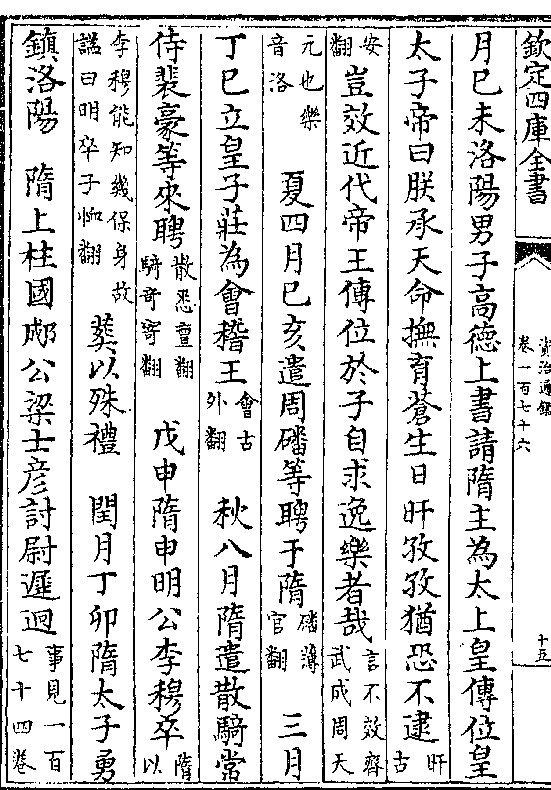 欽定四庫全書
資治通鑑
卷一百七十六
十五
月巳未洛陽男子高德上書請隋主為太上皇傳位皇
太子帝曰朕承天命撫育蒼生日旰孜孜猶恐不逮旰古
安翻豈效近代帝王傳位於子自求逸樂者哉言不效齊武成周天
元也樂音洛 夏四月巳亥遣周磻等聘于隋磻薄官翻 三月
丁巳立皇子莊為會稽王會古外翻 秋八月隋遣散騎常
侍裴豪等來聘散悉亶翻騎奇寄翻 戊申隋申明公李穆卒隋以
李穆能知幾保身故諡曰明卒子恤翻 葬以殊禮 閏月丁卯隋太子勇
鎮洛陽 隋上柱國郕公梁士彥討尉遲迥事見一百七十四卷